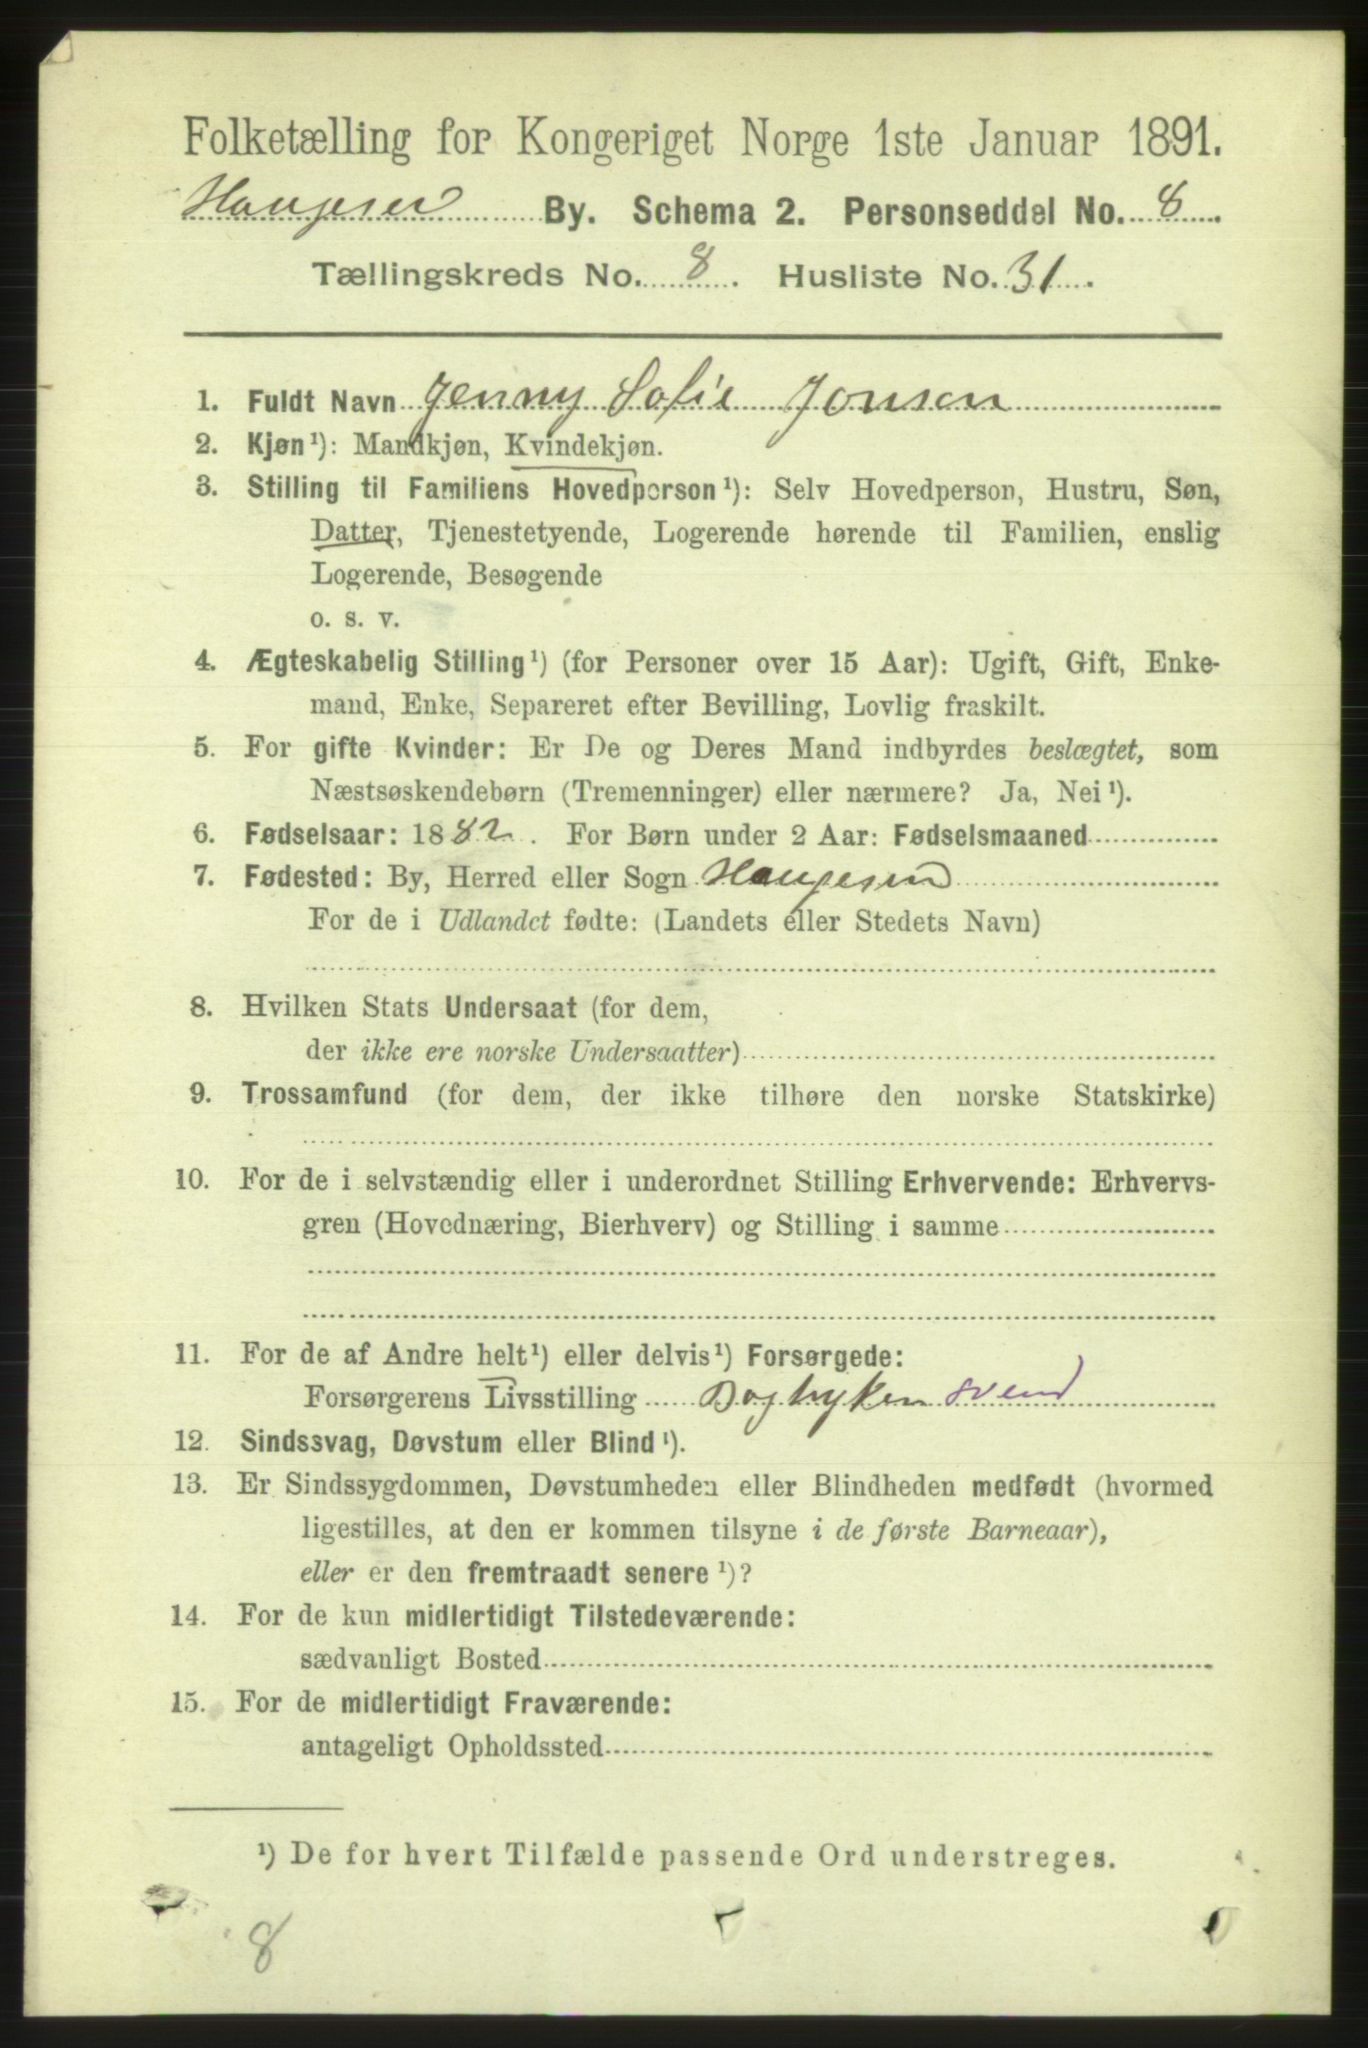 Folketælling for Kongeriget Norge 1ste Januar 1891.
By. Schema 2. Personseddel No. 8.
Tællingskreds No. 8. Husliste No. 31.
1. Fuldt Navn Jenny Sofie Jonsen
2. Kjøn¹): Mandkjøn, Kvindekjøn.
3. Stilling til Familiens Hovedperson¹): Selv Hovedperson, Hustru, Søn,
Datter, Tjenestetyende, Logerende hørende til Familien, enslig
Logerende, Besøgende
o. s. v.
4. Ægteskabelig Stilling¹) (for Personer over 15 Aar): Ugift, Gift, Enke-
mand, Enke, Separeret efter Bevilling, Lovlig fraskilt.
5. For gifte Kvinder: Er De og Deres Mand indbyrdes beslægtet, som
Næstsøskendebørn (Tremenninger) eller nærmere? Ja, Nei¹).
6. Fødselsaar: 1882. For Børn under 2 Aar: Fødselsmaaned
7. Fødested: By, Herred eller Sogn
For de i Udlandet fødte: (Landets eller Stedets Navn)
8. Hvilken Stats Undersaat (for dem,
der ikke ere norske Undersaatter)
9. Trossamfund (for dem, der ikke tilhøre den norske Statskirke)
10. For de i selvstændig eller i underordnet Stilling Erhvervende: Erhvervs-
gren (Hovednæring, Bierhverv) og Stilling i samme
11. For de af Andre helt¹) eller delvis¹) Forsørgede:
Forsørgerens Livsstilling svend
12. Sindssvag, Døvstum eller Blind¹).
13. Er Sindssygdommen, Døvstumheden eller Blindheden medfødt (hvormed
ligestilles, at den er kommen tilsyne i de første Barneaar),
eller er den fremtraadt senere¹)?
14. For de kun midlertidigt Tilstedeværende:
sædvanligt Bosted
15. For de midlertidigt Fraværende:
antageligt Opholdssted
¹) De for hvert Tilfælde passende Ord understreges.
8